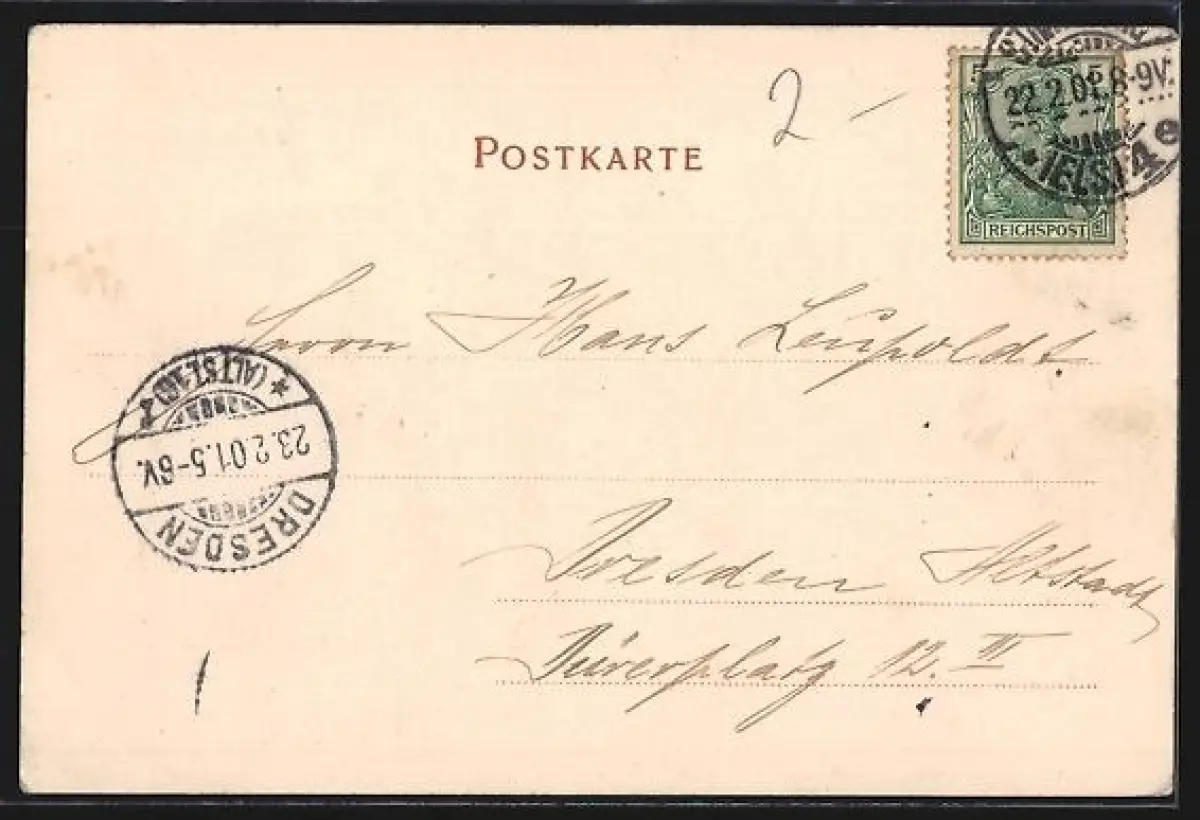 2 -
POSTKARTE
5 5
22.2.01.8-9V.
4e
REICHSPOST
Herrn Hans Leupoldt
* (ALTST. 16) z
23.2.01.5-6V.
DRESDEN
Dresden Altstadt
Dürerplatz 12. III